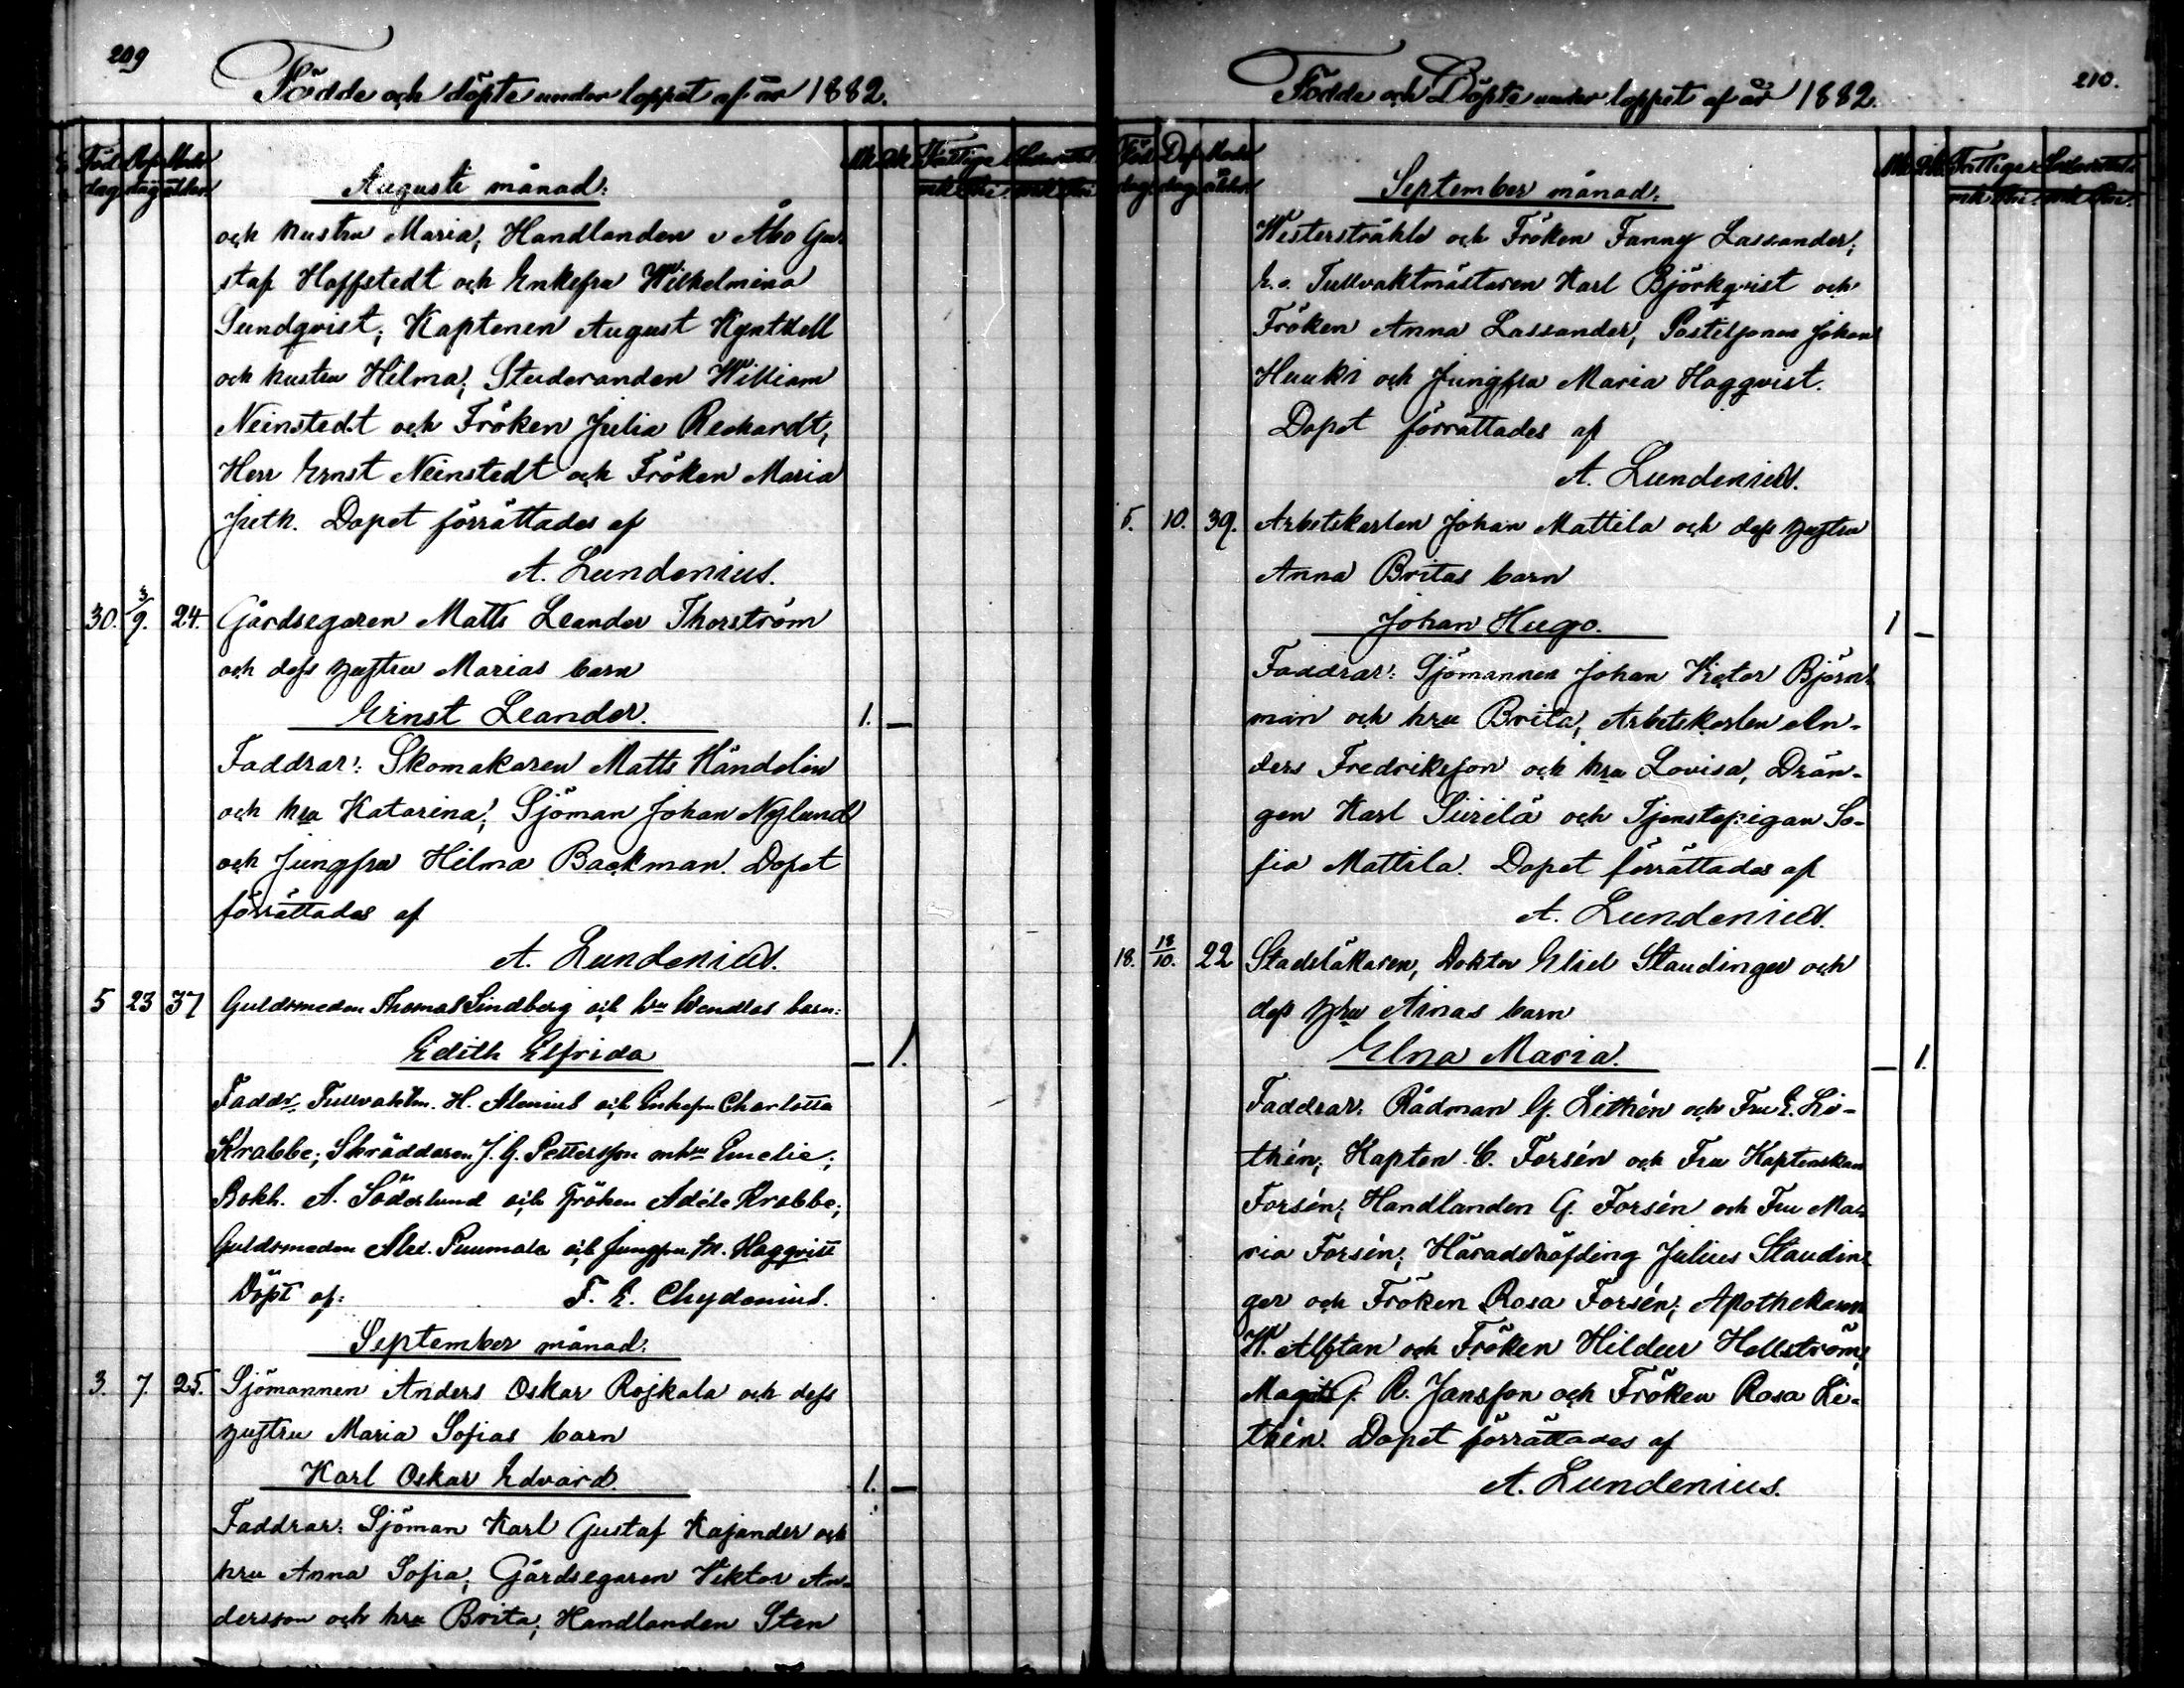 209
Födde och döpte under loppet af år 1882.
Föd. dag Döp. dag Mod. ålder Mk Qk Fattige mk Qvi.
Augusti månad:
och hustru Maria; Handlanden i Åbo Gu-
staf Hoffstedt och Enkefru Wilhelmina
Sundqvist; Kaptenen August Kyntzell
och hustru Hilma; Studeranden William
Neinstedt och Fröken Julia Rechardt,
Herr Ernst Neinstedt och Fröken Maria
Jreth. Dopet förrättades af
A. Lundenius.
30. 3/9. 24. Gårdsegaren Matts Leander Thorström
och dess hustru Marias barn
Ernst Leander. 1. —
Faddrar: Skomakaren Matts Händelin
och hru Katarina; Sjöman Johan Nylund
och Jungfru Hilma Backman. Dopet
förrättades af
A. Lundenius.
5 23 37 Guldsmeden Thomas Lindberg och hru Wendlas barn:
Edith Elfrida — 1.
Faddr. Tullvaktm. H. Alenius och Enkefru Charlotta
Krabbe; Skräddaren J. G. Pettersson m hru Emelie;
Bokh. A. Söderlund och Fröken Adéle Krabbe;
Guldsmeden Alex. Puumala och Jungfru M. Hagqvist
Döpt af: F. E. Chydenius.
September månad:
3. 7. 25. Sjömannen Anders Oskar Rojkala och dess
hustru Maria Sofias barn
Karl Oskar Edvard. 1. —
Faddrar: Sjöman Karl Gustaf Kajander och
hru Anna Sofia; Gårdsegaren Viktor An-
dersson och hru Brita; Handlanden Sten
210.
Födde och Döpte under loppet af år 1882.
Föd. dag Döp. dag Mod. ålder Mk Qk Fattiga mk Qvi.
September månad:
Westerstråhle och Fröken Fanny Lassander;
E. o. Tullvaktmästaren Karl Björkqvist och
Fröken Anna Lassander; Postiljonen Johan
Huuki och Jungfru Maria Hagqvist.
Dopet förrättades af
A. Lundenius.
5. 10. 39. Arbetskarlen Johan Mattila och dess hustru
Anna Britas barn
Johan Hugo. 1 —
Faddrar: Sjömannen Johan Victor Björn-
man och hru Brita; Arbetskarlen An-
ders Fredriksson och hru Lovisa, Drän-
gen Karl Siirilä och Tjenstepigan So-
fia Mattila. Dopet förrättades af
A. Lundenius.
18. 18/10. 22 Stadsläkaren, Doktor Eliel Staudinger och
dess hru Ainas barn
Elna Maria. — 1.
Faddrar: Rådman G. Lithén och Fru E. Li-
thén; Kapten C. Forsén och Fru Kaptenskan
Forsén; Handlanden G. Forsén och Fru Ma-
ria Forsén; Häradshöfding Julius Staudin-
ger och Fröken Rosa Forsén; Apothekaren
W. Alftan och Fröken Hildur Hellström;
Magist. G. R. Jansson och Fröken Rosa Li-
thén. Dopet förrättades af
A. Lundenius.